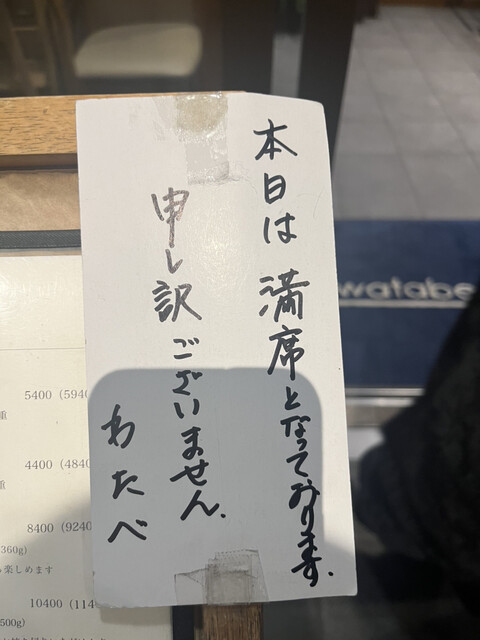 本日は満席となっております.
申し訳ございません.
わたべ
watabe
5400 (594
重
4400 (484
重
8400 (924
360g)
楽しめます
10400 (114
500g)